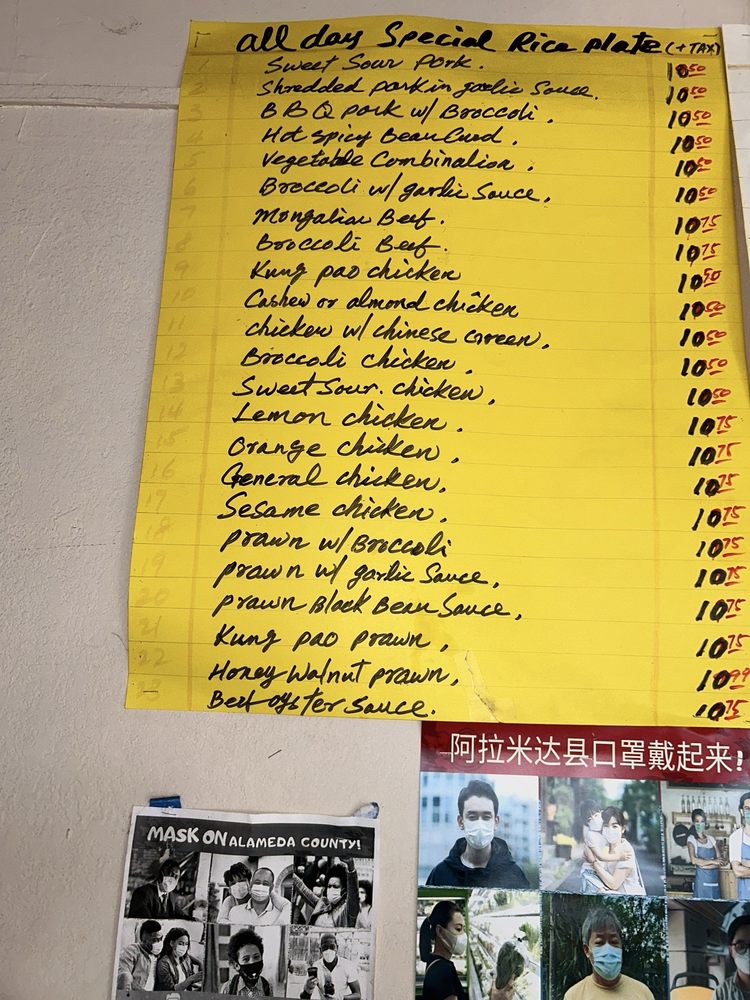 all day Special Rice plate (+TAX)
1 Sweet Sour Pork. 10.50
2 Shredded pork in garlic Sauce. 10.50
3 BBQ pork w/ Broccoli. 10.50
4 Hot spicy Bean Curd. 10.50
5 Vegetable Combination. 10.50
6 Broccoli w/ garlic Sauce, 10.50
7 Mongalian Beef. 10.75
8 Broccoli Beef. 10.75
9 Kung pao chicken 10.50
10 Cashew or almond chicken 10.50
11 chicken w/ chinese Green, 10.50
12 Broccoli chicken, 10.50
13 Sweet Sour. chicken, 10.50
14 Lemon chicken. 10.75
15 Orange chicken, 10.75
16 General chicken, 10.75
17 Sesame chicken, 10.75
18 prawn w/ Broccoli 10.75
19 prawn w/ garlic Sauce, 10.75
20 prawn Black Bean Sauce, 10.75
21 Kung pao prawn, 10.75
22 Honey Walnut prawn, 10.99
23 Beef oyster Sauce. 10.75
阿拉米达县口罩戴起来!
MASK ON ALAMEDA COUNTY!